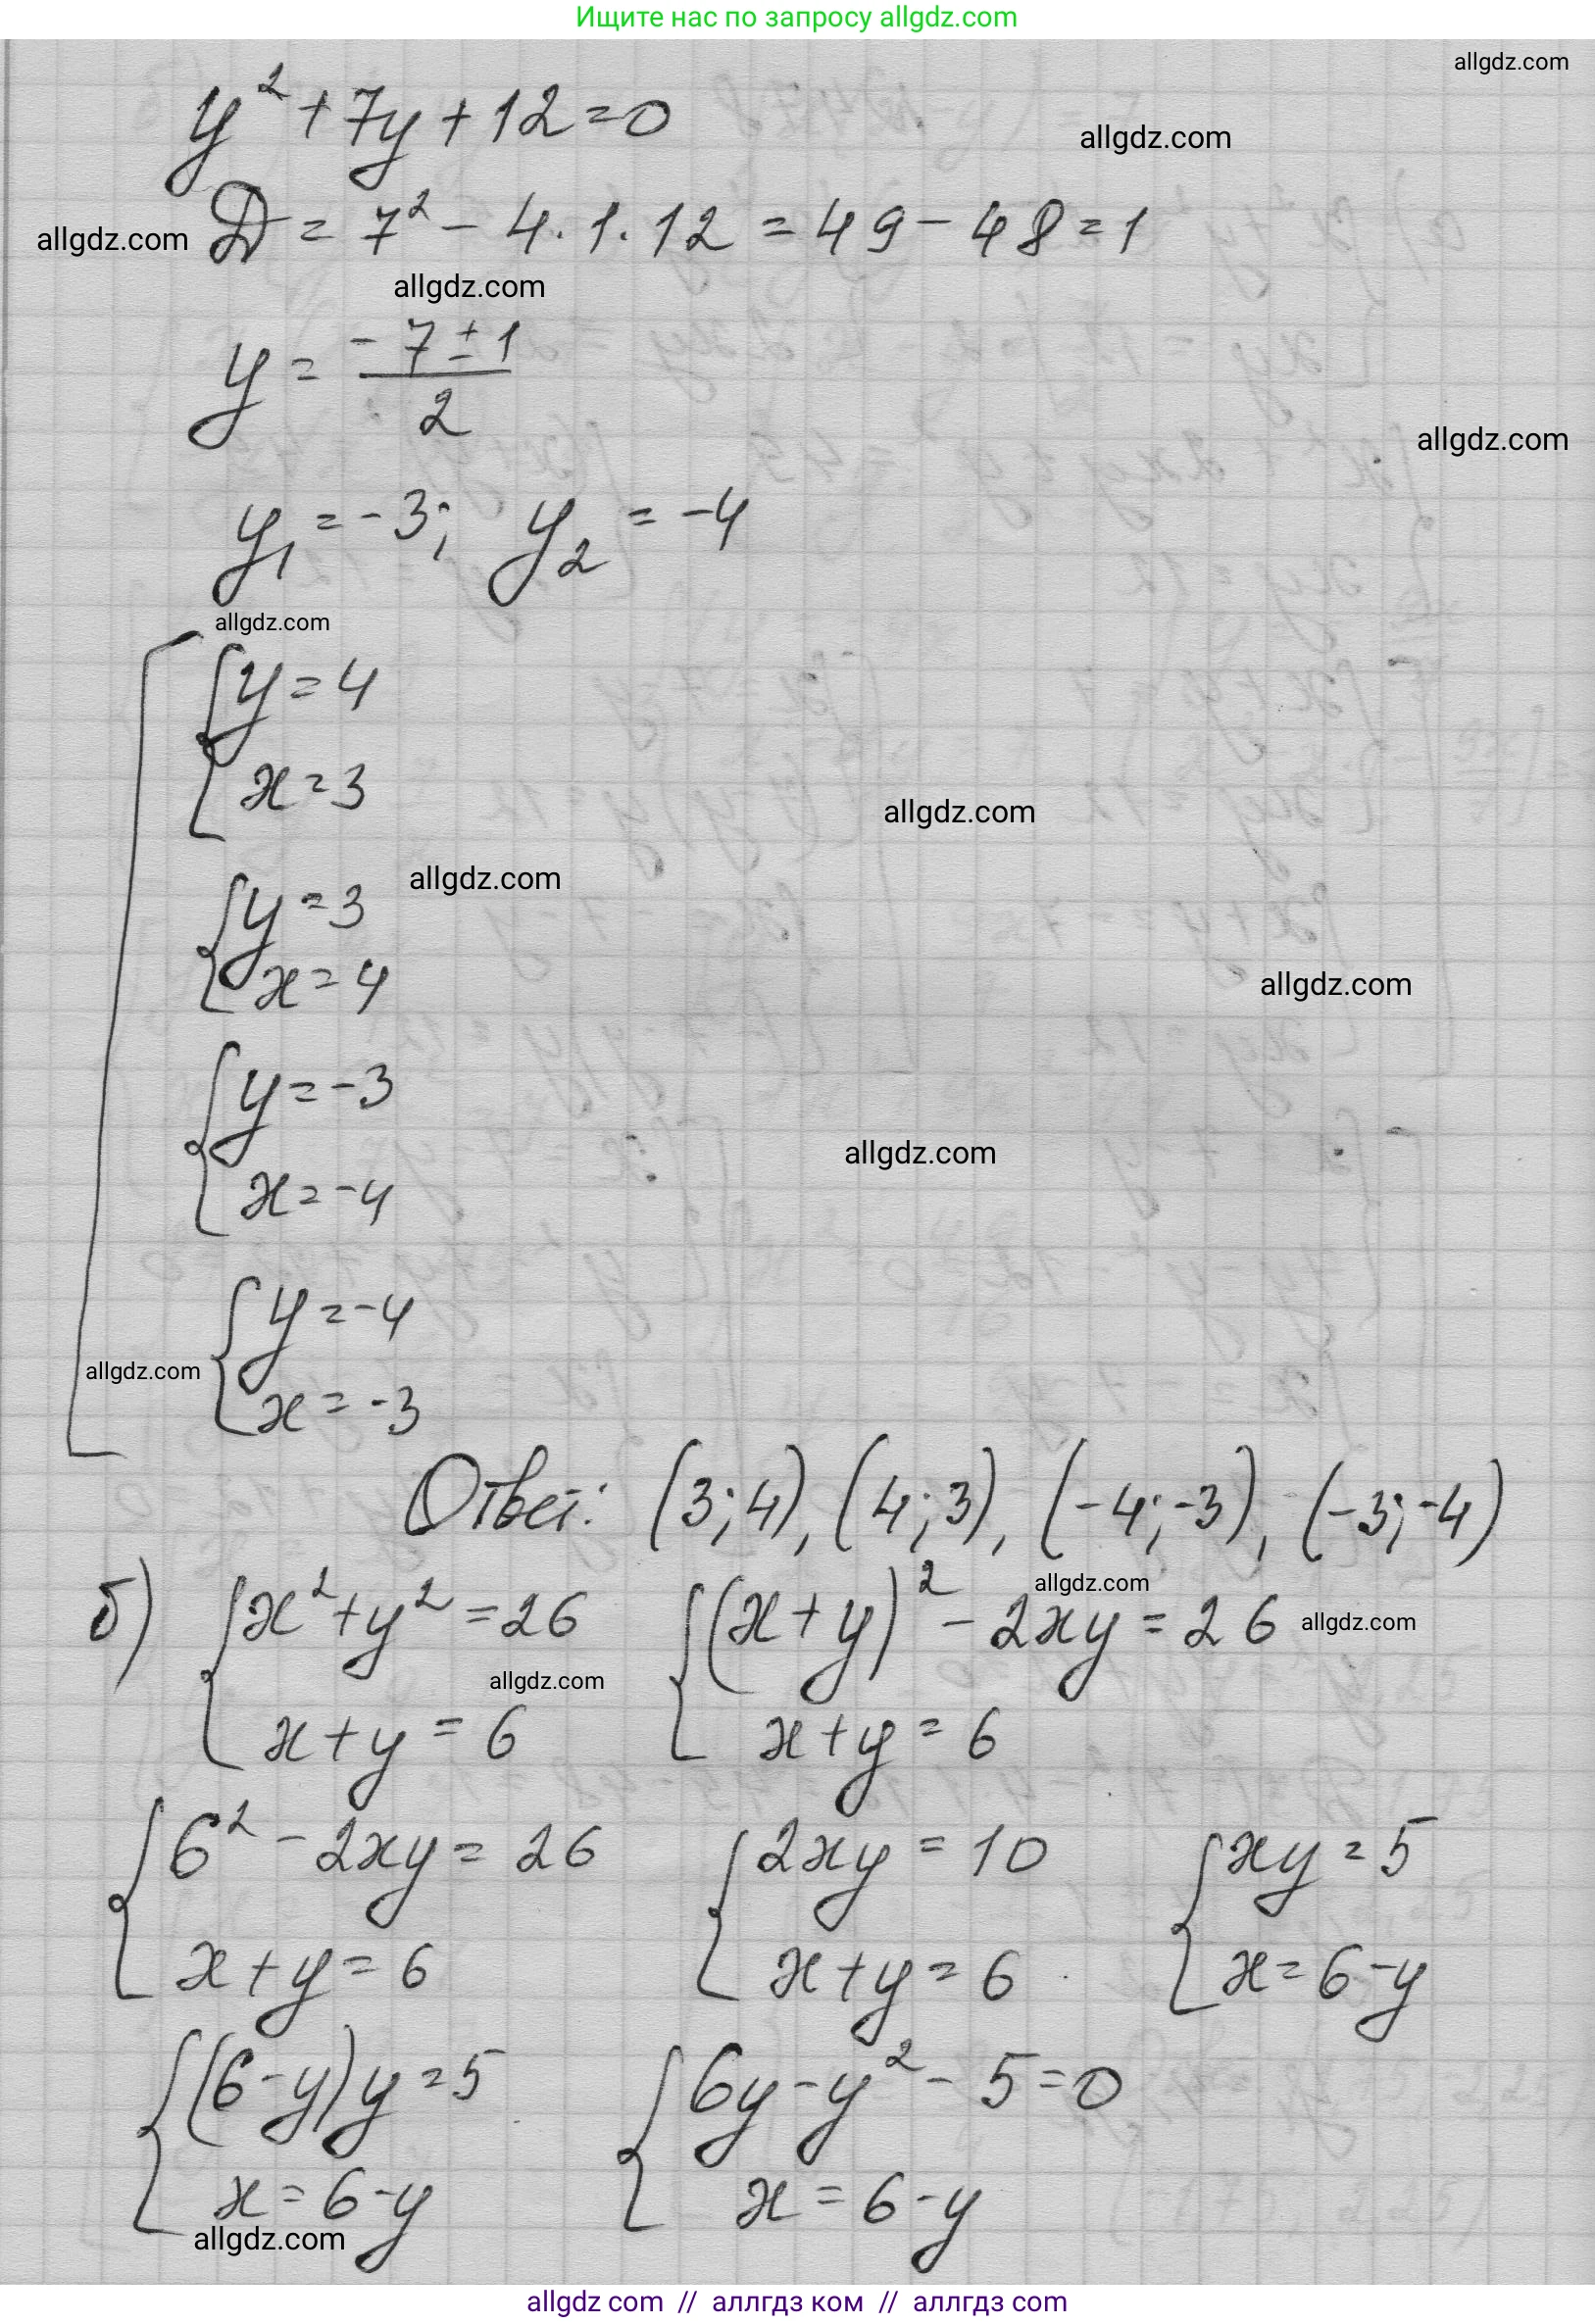 Ищите нас по запросу allgdz.com
allgdz.com
y² + 7y + 12 = 0
allgdz.com
allgdz.com
D = 7² - 4·1·12 = 49 - 48 = 1
allgdz.com
y = (-7 ± 1)/2
allgdz.com
y₁ = -3; y₂ = -4
allgdz.com
y = 4
x = 3
allgdz.com
allgdz.com
y = 3
x = 4
allgdz.com
y = -3
allgdz.com
x = -4
y = -4
allgdz.com
x = -3
Ответ: (3;4), (4;3), (-4;-3), (-3;-4)
allgdz.com
б) { x² + y² = 26 { (x+y)² - 2xy = 26
allgdz.com
allgdz.com
x + y = 6 x + y = 6
{ 6² - 2xy = 26 { 2xy = 10 { xy = 5
x + y = 6 x + y = 6 x = 6 - y
{ (6-y)y = 5 { 6y - y² - 5 = 0
x = 6 - y x = 6 - y
allgdz.com
allgdz com // аллгдз ком // аллгдз com